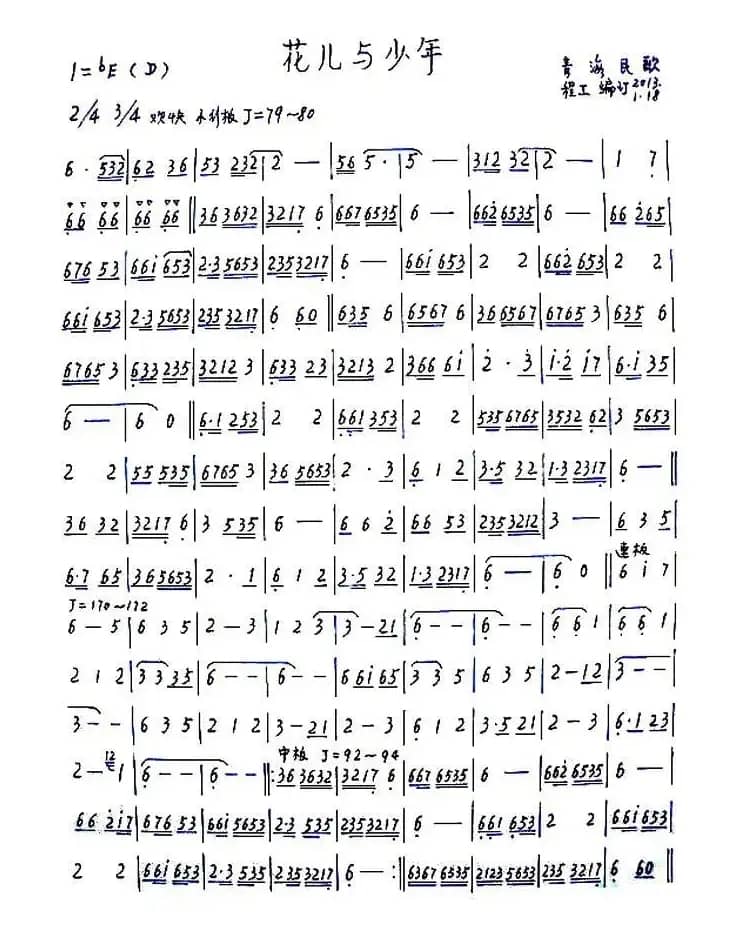 花儿与少年
1=♭E (D)
青海民歌
程工 编订 2013.1.18
2/4 3/4 欢快 木斜板 J=79~80
6·532|62 36|53 232|2 —|56 5·|5 —|312 32|2 —|1 7|
66 66|66 66‖363632|3217 6|6676535|6 —|6626535|6 —|66 265|
676 53|661 653|2·35653|2353217|6 —|661 653|2 2|662 653|2 2|
661 653|2·35653|2353217|6 60‖635 6|6567 6|366567|6765 3|635 6|
6765 3|633 235|3212 3|633 23|3213 2|366 61|2·3|1·2 17|6·1 35|
6 —|6 0‖6·1 253|2 2|661 353|2 2|5356765|3532 62|3 5653|
2 2|55 535|6765 3|36 5653|2·3|6 1 2|3·5 32|1·3 2317|6 —‖
36 32|3217 6|3 535|6 —|6 6 2|66 53|2353212|3 —|6 3 5|
6·7 65|365653|2·1|6 1 2|3·5 32|1·3 2317|6 —|6 0‖6 1 7|
连板
J=170~172
6 — 5|6 3 5|2 — 3|1 2 3|3 — 21|6 — —|6 — —|6 6 1|6 6 1|
2 1 2|3 3 35|6 — —|6 — —|6 6165|3 3 5|6 3 5|2 — 12|3 — —|
3 — —|6 3 5|2 1 2|3 — 21|2 — 3|6 1 2|3·5 21|2 — 3|6·1 23|
中板 J=92~94
2 — 12 1|6 — —|6 — —‖:363632|3217 6|667 6535|6 —|662 6535|6 —|
66 217|676 53|661 5653|2·3 535|2353217|6 —|661 653|2 2|661653|
2 2|661 653|2·3 535|2353217|6 —:‖6367 6535|2123 5653|235 3217|6 60‖